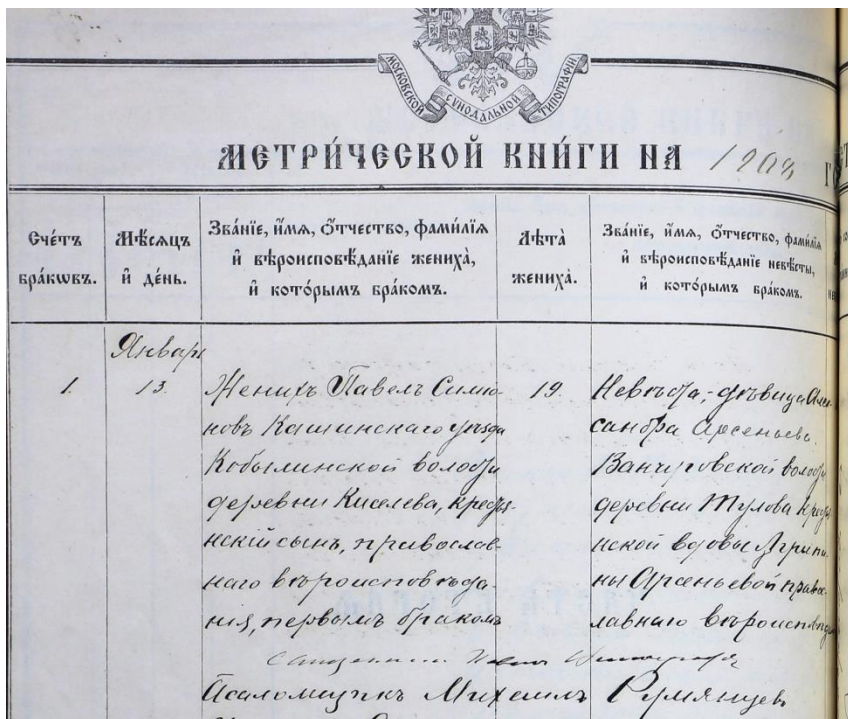 МОСКОВСКОЙ СУНОДАЛЬНОЙ ТИПОГРАФІИ
МЕТРИ́ЧЕСКОЙ КНИ́ГИ НА 1908 Г
Сче́тъ бра́кѡвъ.
Мѣ́сяцъ и҆ де́нь.
Зва́нїе, и҆́мя, ѻ҆́тчество, фами́лїя
и҆ вѣроисповѣ́данїе жениха̀,
и҆ кото́рымъ бра́комъ.
Лѣта̀ жениха̀.
Зва́нїе, и҆́мя, ѻ҆́тчество, фами́лїя
и҆ вѣроисповѣ́данїе невѣ́сты,
и҆ кото́рымъ бра́комъ.
Январь
1. 13. Женихъ Павелъ Симео-
новъ Кашинскаго уѣзда
Кобылинской волости
деревни Киселева, крестья-
нскій сынъ, православ-
наго вѣроисповѣда-
нія, первымъ бракомъ
19.
Невѣста, дѣвица Алек-
сандра Арсеньева
волости
деревни Тулова
нской вдовы Агрипи-
ны Арсеньевой право-
лавнаго вѣроисповѣд
Священникъ Иоаннъ
Псаломщикъ Михаилъ Румянцевъ